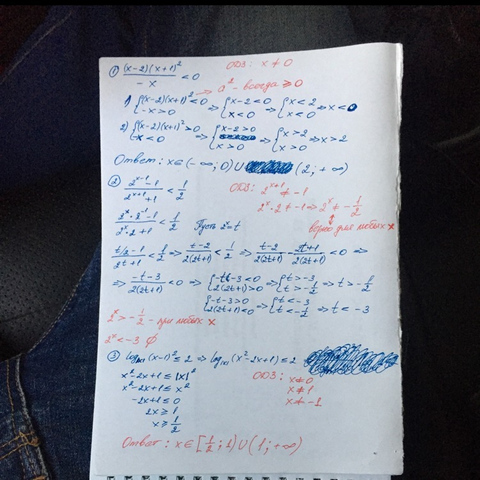 ① (x-2)(x+1)²/-x < 0 ОДЗ: x ≠ 0
→ a² - всегда ≥ 0
1) {(x-2)(x+1)² < 0 {-x > 0 ⇒ {x-2 < 0 {x < 0 ⇒ {x < 2 {x < 0 ⇒ x < 0
2) {(x-2)(x+1)² > 0 {-x < 0 ⇒ {x-2 > 0 {x > 0 ⇒ {x > 2 {x > 0 ⇒ x > 2
Ответ: x ∈ (-∞; 0) ∪ (2; +∞)
② 2^(x-1) -1/2^(x+1) +1 < 1/2 ОДЗ: 2^(x+1) ≠ -1
2^x · 2 ≠ -1 ⇒ 2^x ≠ -1/2
верно для любых x
2^x · 2^-1 -1/2^x · 2 +1 < 1/2 Пусть 2^x = t
t/2 -1/2t+1 < 1/2 ⇒ t-2/2(2t+1) < 1/2 ⇒ t-2/2(2t+1) - 2t+1/2(2t+1) < 0 ⇒
⇒ -t-3/2(2t+1) < 0 ⇒ {-t-3 < 0 {2(2t+1) > 0 ⇒ {t > -3 {t > -1/2 ⇒ t > -1/2
{-t-3 > 0 {2(2t+1) < 0 ⇒ {t < -3 {t < -1/2 ⇒ t < -3
2^x > -1/2 - при любых x
2^x < -3 ∅
③ log|x| (x-1)² ≤ 2 ⇒ log|x| (x²-2x+1) ≤ 2
x²-2x+1 ≤ |x|² ОДЗ: x ≠ 0
x²-2x+1 ≤ x² x ≠ 1
-2x+1 ≤ 0 x ≠ -1
2x ≥ 1
x ≥ 1/2
Ответ: x ∈ [1/2; 1) ∪ (1; +∞)